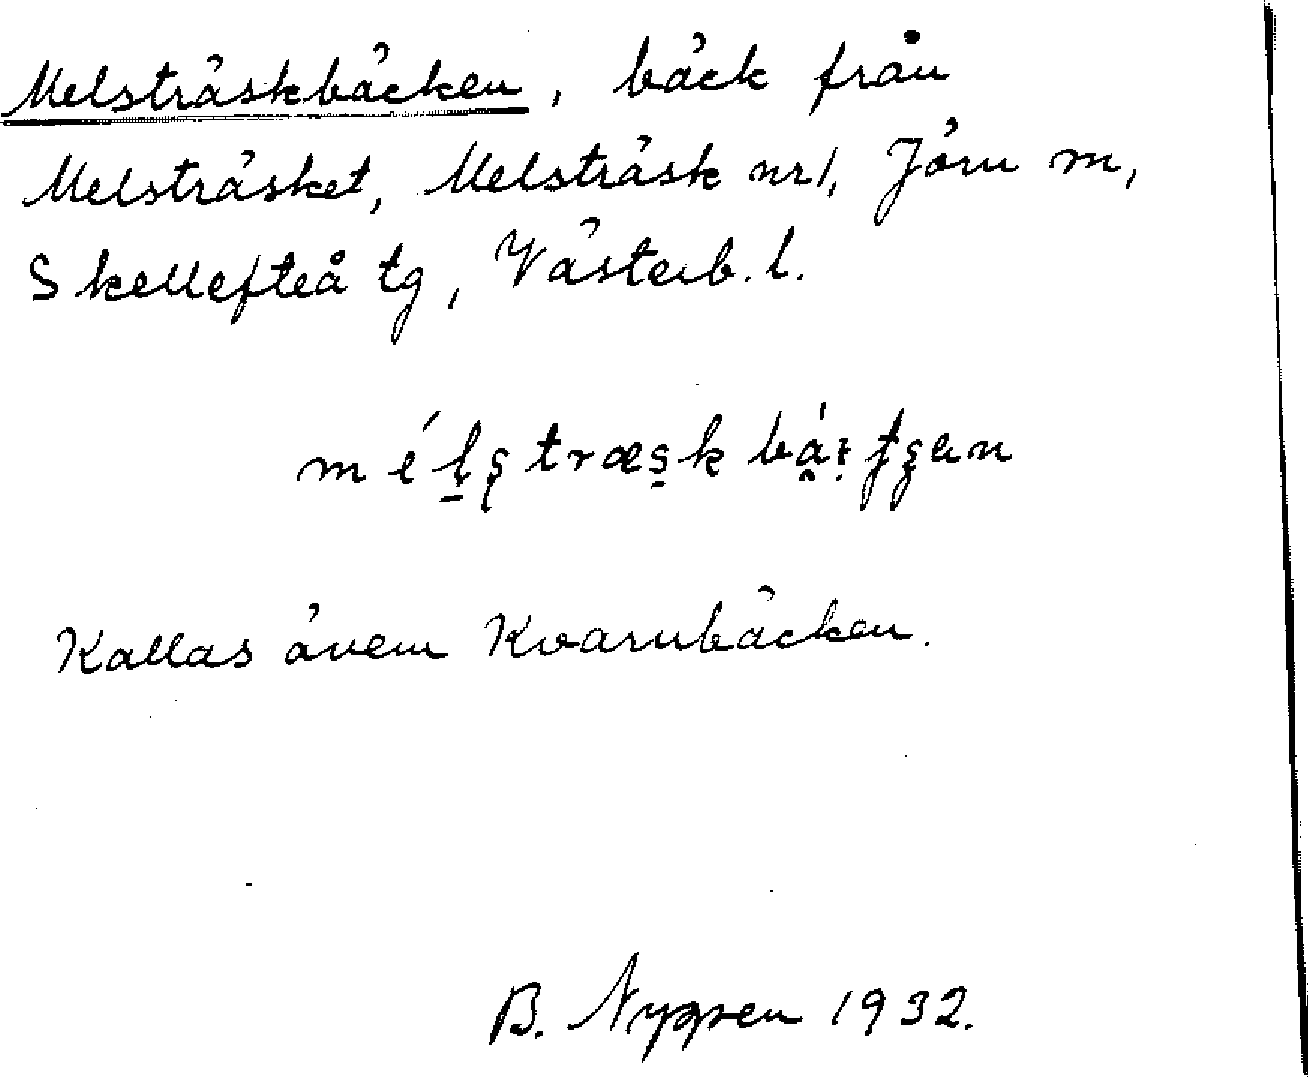 Melsträskbäcken, bäck från
Melsträsket, Melsträsk nr 1, Jörn m,
Skellefteå tg, Västerb. l.
Kallas även Kvarnbäcken.
B. Nygren 1932.